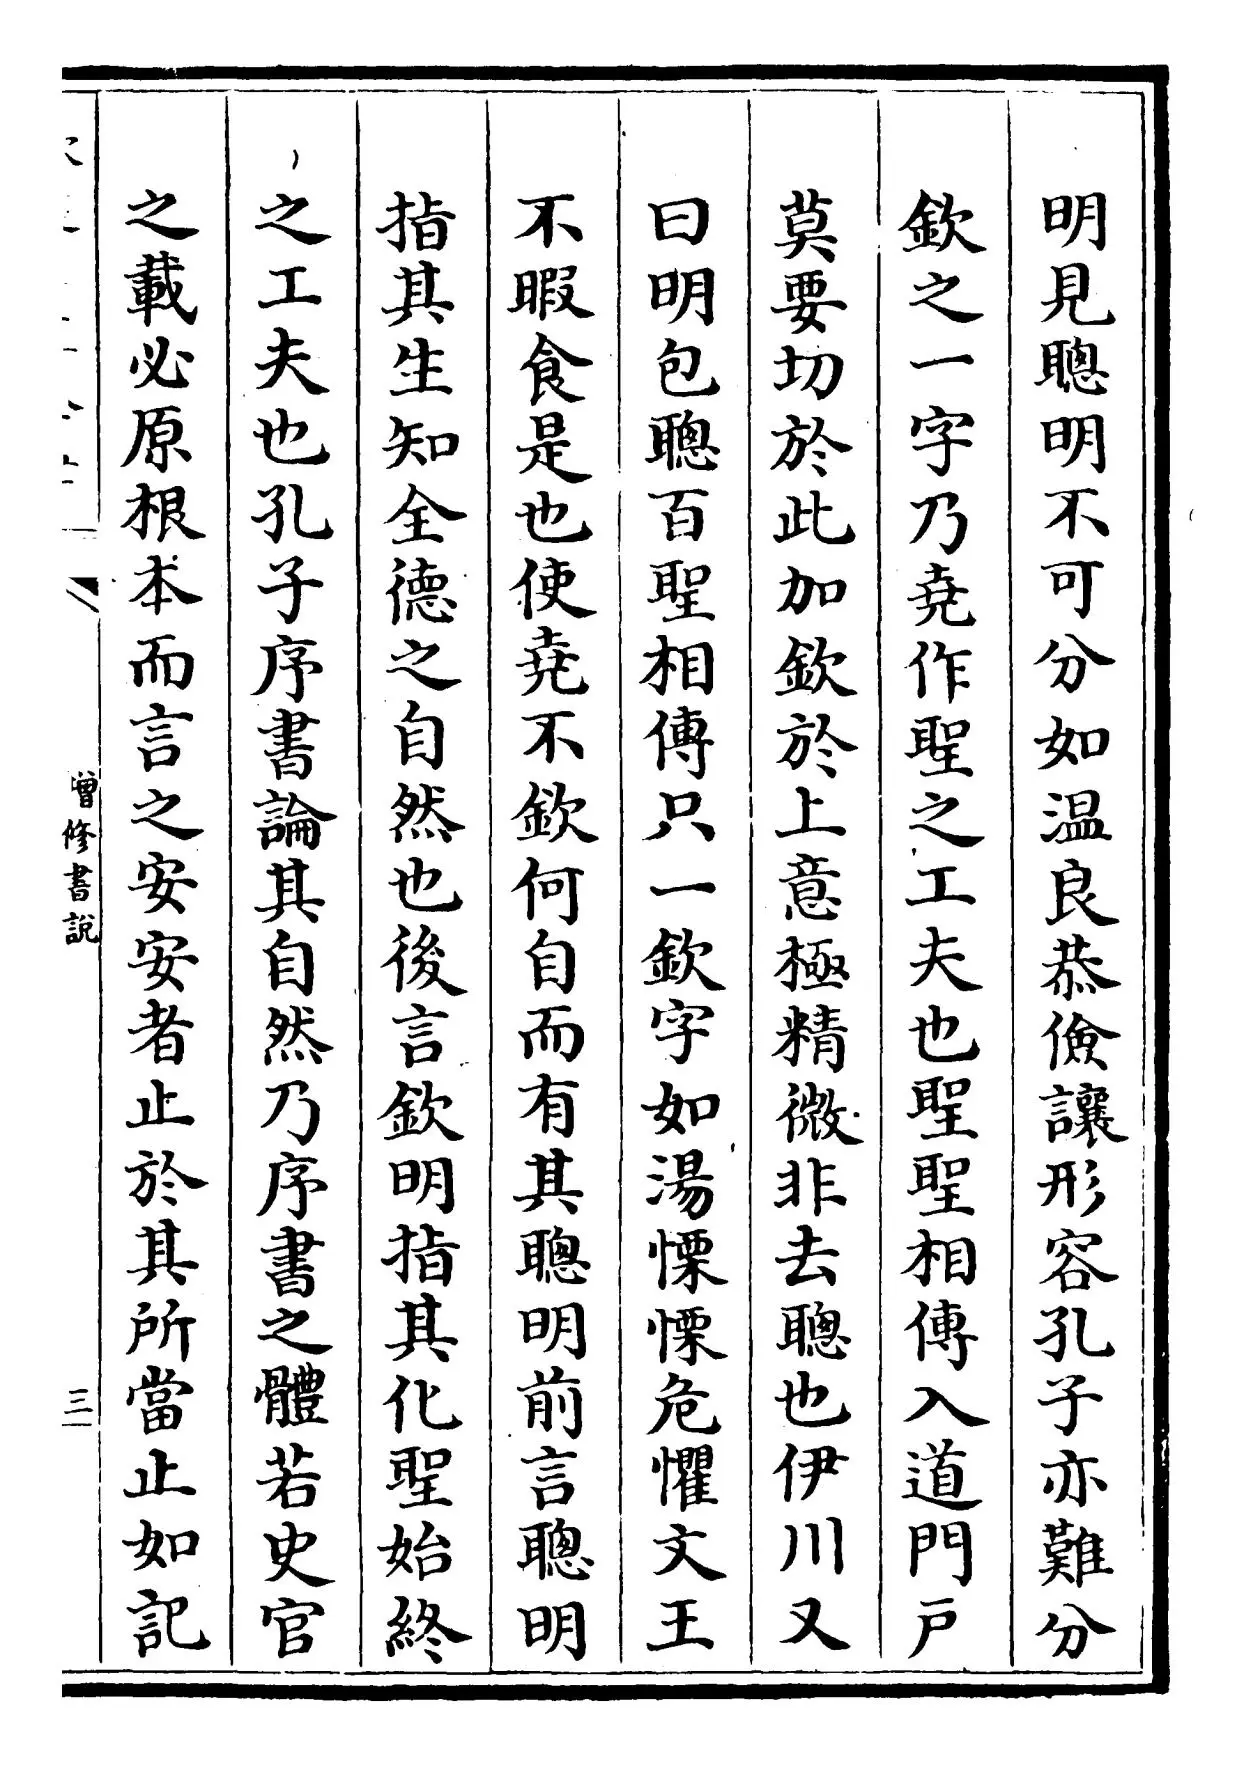 明見聰明不可分如温良恭儉讓形容孔子亦難分
欽之一字乃堯作聖之工夫也聖聖相傳入道門戸
莫要切於此加欽於上意極精微非去聰也伊川又
曰明包聰百聖相傳只一欽字如湯慄慄危懼文王
不暇食是也使堯不欽何自而有其聰明前言聰明
指其生知全德之自然也後言欽明指其化聖始終
之工夫也孔子序書論其自然乃序書之體若史官
之載必原根本而言之安安者止於其所當止如記
增修書說
三